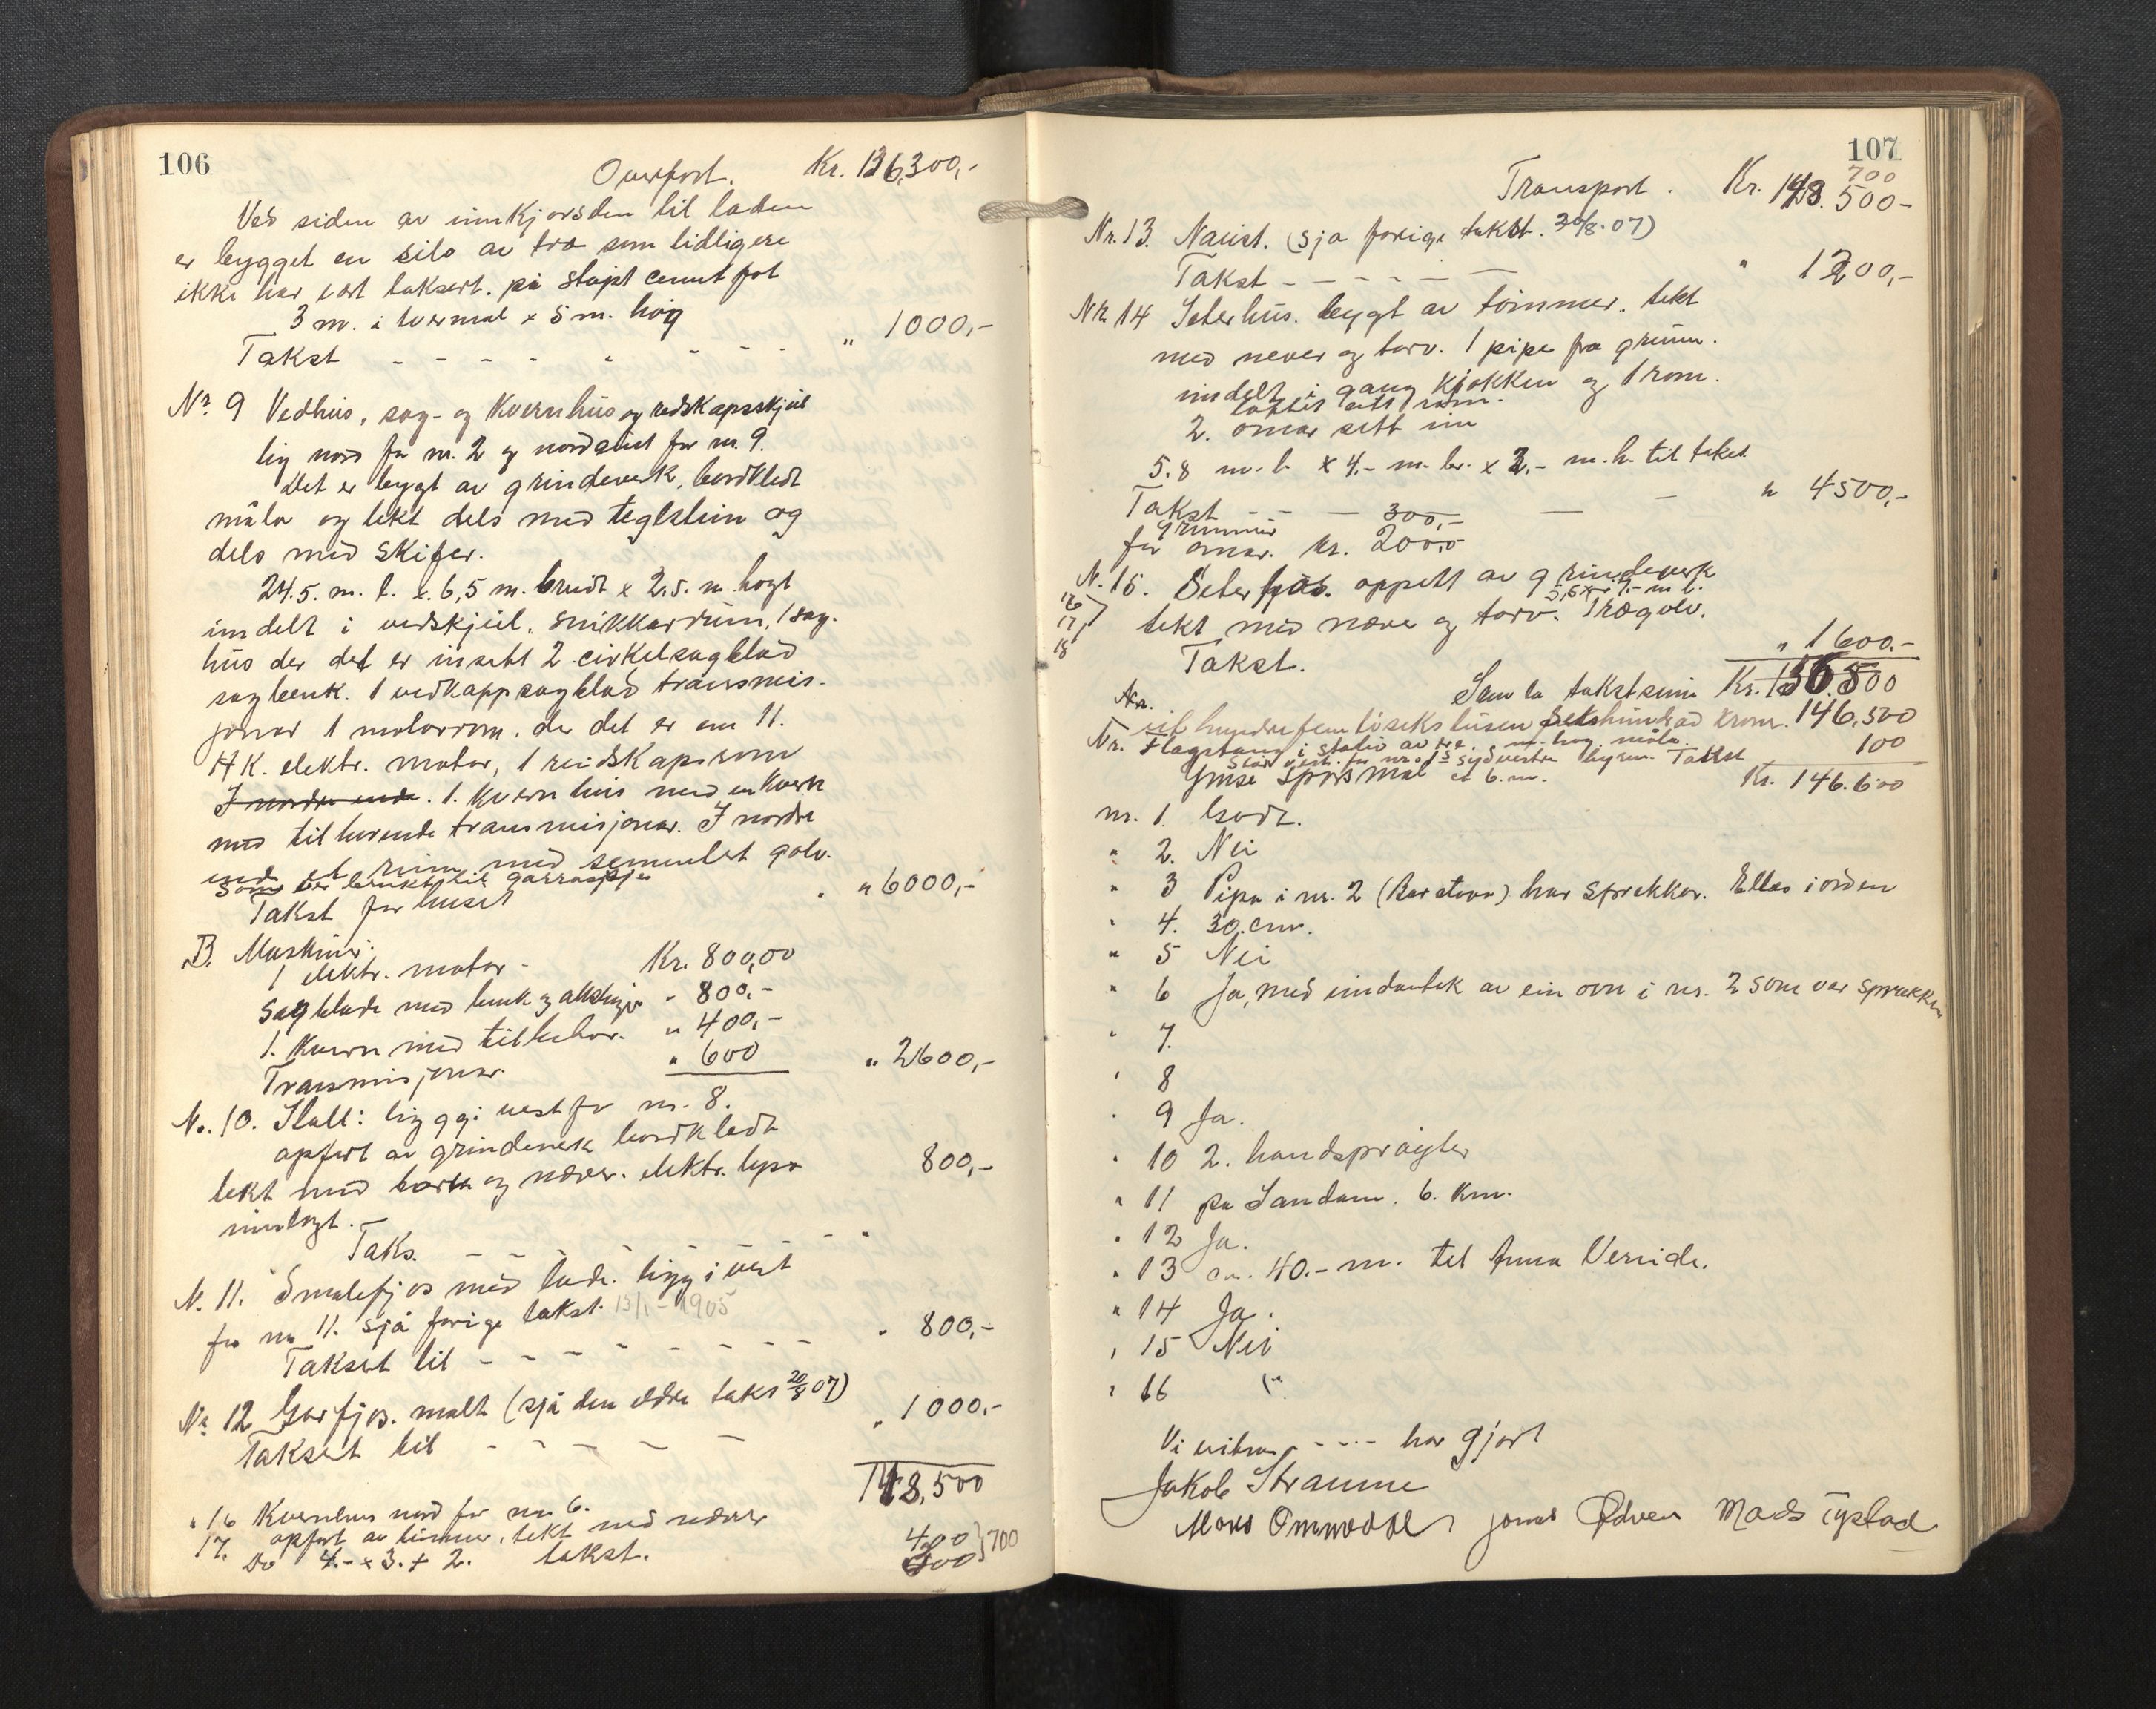 106
Overført. Kr. 136,300,-
Ved siden av innkjørsden til laden
er bygget en silo av træ som tidligere
ikke har vært taksert. på støpt cement fot
3 m. i tvermål x 5 m. høg
Takst - - - - " - - - " 1000,-
Nr. 9 Vedhus, sag- og Kvernhus og redskapsskjul
lig nord for nr. 2 og nordaust for nr. 9.
Det er bygt av grindverk, bordkledt
måla og tekt dels med teglstein og
dels med skifer.
24.5. m. l. x. 6,5 m. breidt x 2,5. m. høgt
inndelt i vedskjul, snikkarrum, 1 sag-
hus der det er insatt 2 cirkelsagblad
sagbenk. 1 vedkappsagblad transmis-
jonar 1 motorrom. der det er en 11.
HK. elektr. motor, 1 reidskapsrom
I nordre ende. 1. Kvernhus med en kvern
med tilhørende transmisjonar. I nordre
ende et rum med sementert golv.
som er brukt til garrasje
Takst for huset " " 6000,-
B. Maskiner.
1 elektr. motor - Kr. 800,00
sagblade med benk og " 800,-
1. Kvern med tilbehør. " 400,-
Transmisjonar. " 600 " 2600,-
No. 10. Stall: ligg i vest for nr. 8.
opført av grindverk bordkledt
tekt med og never. elektr. lys 800,-
innlagt.
Taks. - - - - - - "
N. 11. Smalefjøs med lade. ligg i vest
for nr 11. sjå forige takst. 13/1 - 1905
Taksert til - - - - - - - - " 800,-
Nr 12 Gorfjøs. malt (sjå den eldre takst 20/8 07)
Taksert til - - - - - " 1000.-
148,500
" 16 Kvernhus nord for nr 6.
17. opført av tømmer, tekt med never 400 } 700
Do 4.- x 3. + 2. takst. 300
107
700
Transport. Kr. 148.500-
Nr. 13. Naust. (sjå forige takst. 20/8-07)
Takst - - - - - " 1200,-
Nr. 14 Seterhus. bygt av tømmer. tekt
med never og torv. 1 pipe fra grunn.
inndelt i gang kjøkken og 1 rom.
loftet eitt rom.
2. omnar sett inn
5.8 m. l. x 4.- m. br. x 2.- m. h. til taket
Takst - - - 300,- - - " 4500,-
grunnmur
for omnar. kr. 200,0
N. 15. Seterfjøs. oppsett av grindeverk
5,5 x 7.- m l.
16
17 } tekt med never og torv. Trægolv.
18
Takst. " 1600.-
Samla takstsum Kr. 156.500
Kr.
eit hundre femti seks tusen hundrad kroner. 146,500
Nr. Flagstang i stativ av tre. m. høg måla. 100
Står vest for nr. 1 s sydvestre hyrna. Takst
Ymse spørsmål et 6. m. Kr. 146.600
nr. 1. Godt.
" 2. Nei
" 3 Pipa i nr. 2 (Borstova) har sprekker. Elles i orden
" 4. 30. cm.
" 5 Nei
" 6 Ja, med inndantek av ein ovn i nr. 2 som var sprukken
" 7.
" 8
" 9 Ja.
" 10 2. handsprøyter
" 11 på Sandane. 6. km.
" 12 Ja.
" 13 ca. 40.- m. til Anna
" 14 Ja.
" 15 Nei
" 16 "
Vi vitnar - - - - har gjort
Jakob Straume
Mons Ommedal Jonas Ødven Mads Tystad